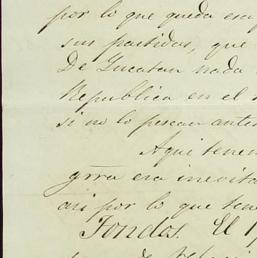 por lo que queda em
sus partidos, que
De Yucatan nada
Republica en el
si no lo pescan antes
Aqui tenem
grra era inevita
asi por lo que ten
Fondos. El